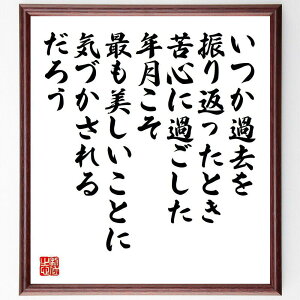 いつか過去を
振り返ったとき
苦心に過ごした
年月こそ
最も美しいことに
気づかされる
だろう